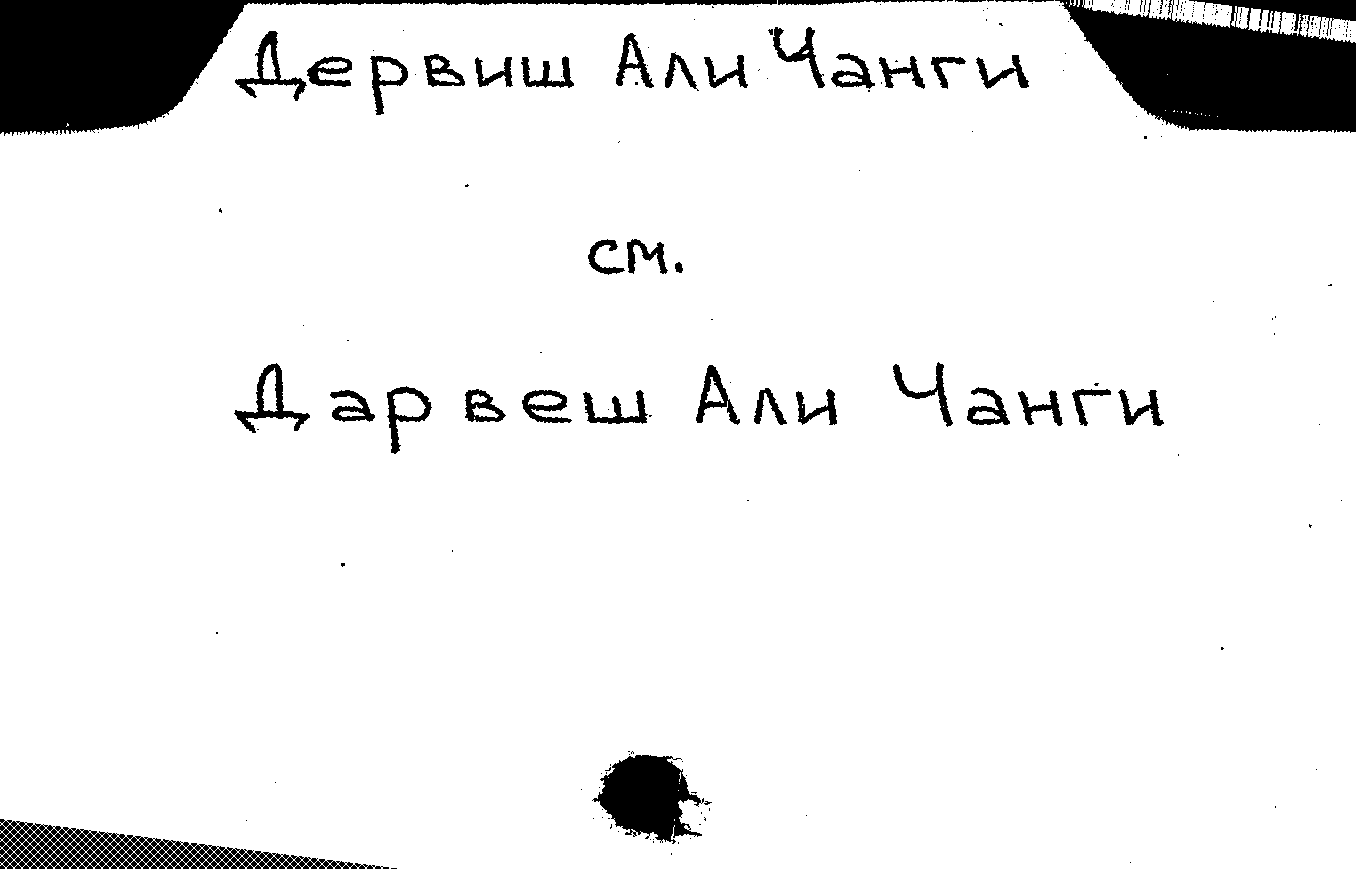 Дервиш Али Чанги
см.
Дарвеш Али Чанги